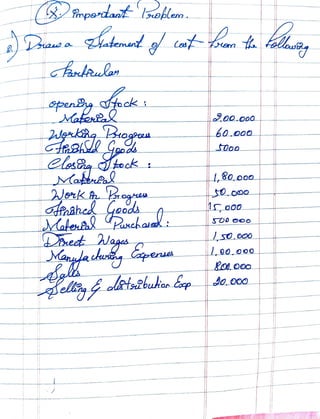 (X) Important Problem.
Q) Draw a Statement of cost from the following
Particular
opening Stock :
Material 2,00.000
Working Progress 60.000
Finished Goods 5000
Closing Stock :
Material 1,80.000
Work In Progress 50.000
Finished Goods 15,000
Material Purchased : 500 000
Direct Wages 1,50.000
Manufacturing Expenses 1.00.000
Sells 800.000
Selling & distribution Exp 20.000